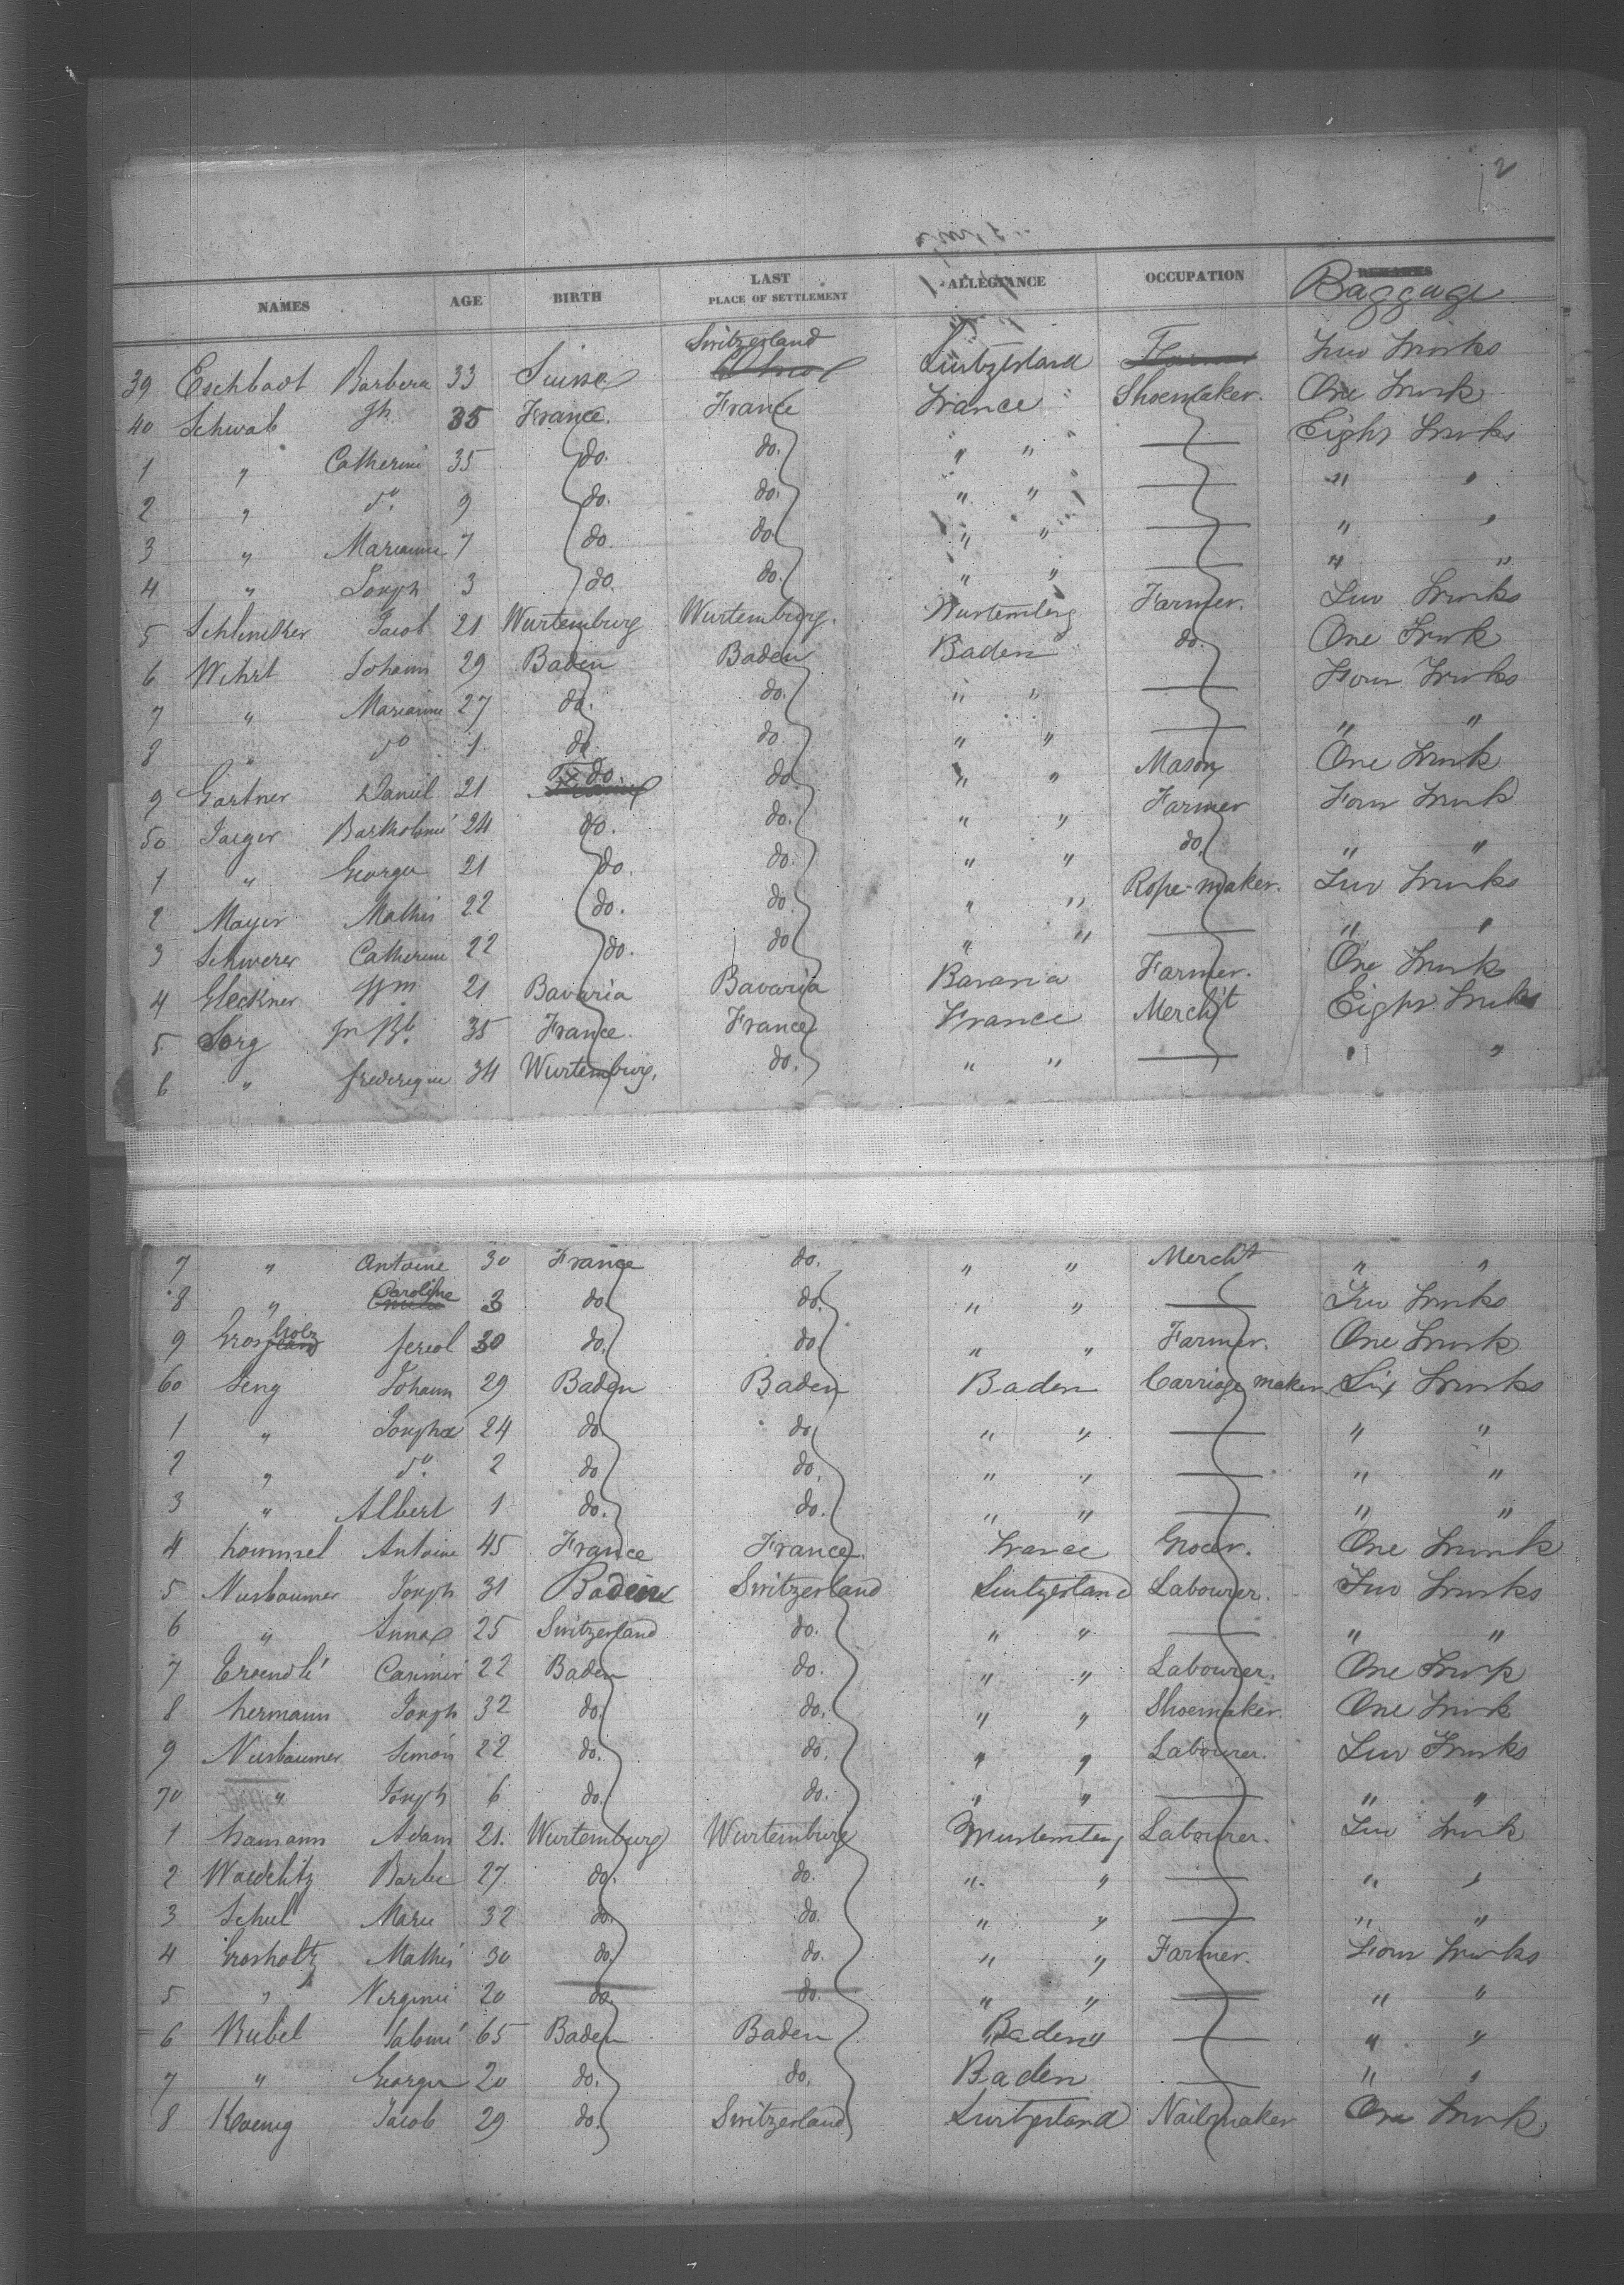 2
NAMES AGE BIRTH LAST PLACE OF SETTLEMENT ALLEGIANCE OCCUPATION REMARKS Baggage
39 Eschbadt Barbera 33 Suisse Switzerland Switzerland Farmer Two Trunks
40 Schwab Jh 35 France France France Shoemaker. One Trunk
1 " Catherine 35 do. do. " " — Eight Trunks
2 " do. 9 do. do. " " — " "
3 " Marianne 7 do. do. " " — " "
4 " Joseph 3 do. do. " " — " "
5 Jacob 21 Wurtemburg Wurtemburg. Wurtemberg Farmer. Two Trunks
6 Wihrt Johann 29 Baden Baden Baden do. One Trunk
7 " Marianne 27 do. do. " " — Four Trunks
8 " do 1 do. do. " " — " "
9 Gartner Daniel 21 do. do. " " Mason One Trunk
50 Jaeger Bartholmé 24 do. do. " " Farmer Four Trunk
1 " George 21 do. do. " " do. " "
2 Mayer Mathis 22 do. do. " " Rope-maker. Two Trunks
3 Schwerer Catherine 22 do. do. " " — " "
4 Gleckner Wm 21 Bavaria Bavaria Bavaria Farmer. One Trunks
5 Sorg Jn Bt. 35 France. France France Mercht Eight Trunks
6 " frederique 34 Wurtemburg. do. " " — " "
7 " Antoine 30 France do. " " Mercht " "
8 " Caroline 3 do. do. " " — Two Trunks
9 Grosholz fereol 30 do. do. " " Farmer. One Trunk
60 Seng Johann 29 Baden Baden Baden Carriage maker Six Trunks
1 " Josepha 24 do do " " — " "
2 " do. 2 do do. " " — " "
3 " Albert 1 do. do. " " — " "
4 hommel Antoine 45 France France. France Grocer. One Trunk
5 Nusbaumer Joseph 31 Baden Switzerland Switzerland Labourer. Two Trunks
6 " Anna 25 Switzerland do. " " — " "
7 Casimir 22 Baden do. " " Labourer. One Trunk
8 hermann Joseph 32 do. do. " " Shoemaker. One Trunk
9 Nusbaumer Simon 22 do. do. " " Labourer. Two Trunks
70 " Joseph 6 do. do. " " — " "
1 hamann Adam 21. Wurtemburg Wurtemburg Wurtemberg Labourer. Two Trunk
2 Barbe 27 do. do. " " — " "
3 Schul Marie 32 do. do. " " — " "
4 Grosholtz Mathis 30 do. do. " " Farmer. Four Trunks
5 " Virginie 20 do. do. " " — " "
6 Rubel Salomé 65 Baden Baden Baden — " "
7 " George 20 do. do. Baden — " "
8 Koenig Jacob 29 do. Switzerland Switzerland Nailmaker One Trunk